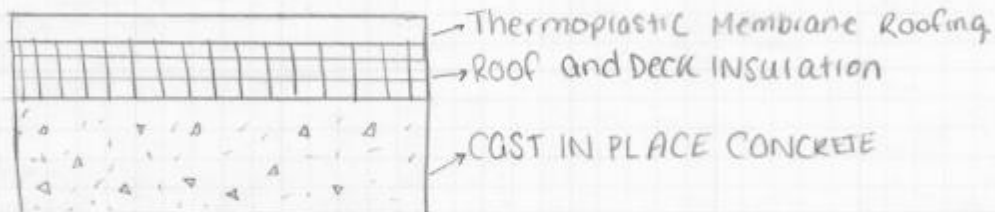 Thermoplastic Membrane Roofing
Roof and Deck INSULATION
CAST IN PLACE CONCRETE